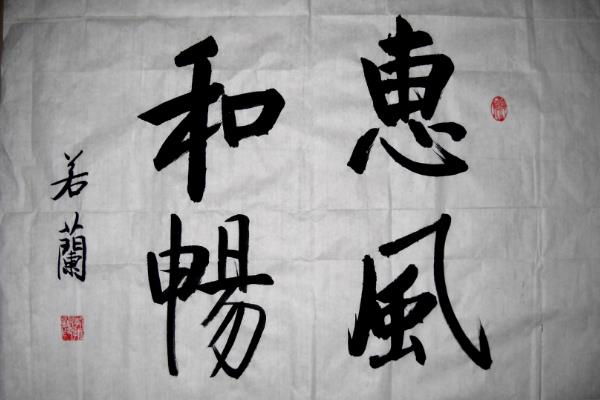 惠風
和暢
若蘭